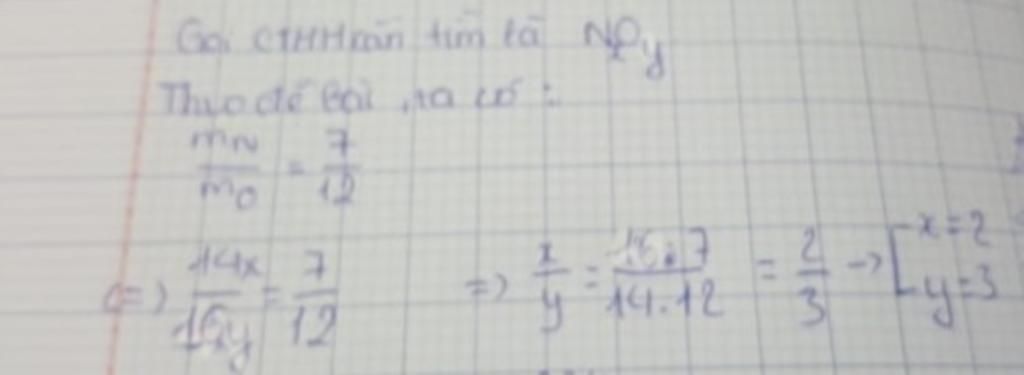 Gọi CTHH cần tìm là NxOy
Theo đề bài, ta có:
mN/mO = 7/12
<=> 14x/16y = 7/12 => x/y = 16.7/14.12 = 2/3 -> [x=2 y=3